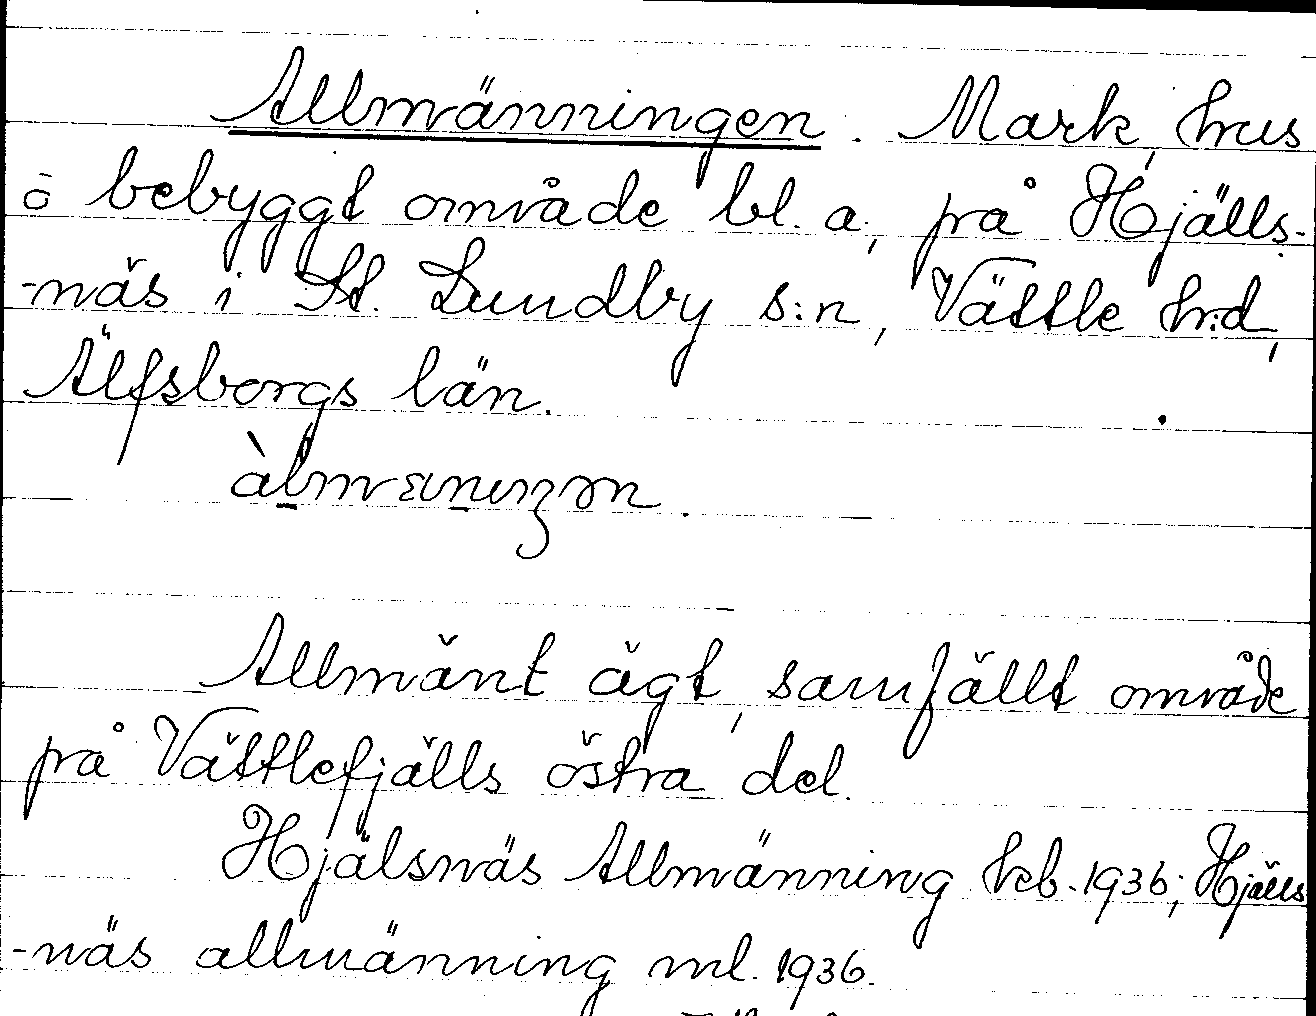 Allmänningen. Mark, hus
o bebyggt område bl. a, på Hjälls-
-näs i St. Lundby s:n, Vättle h:d,
Älfsborgs län.
Allmänt ägt, samfällt område
på Vättlefjälls östra del.
Hjälsnäs Allmänning kb. 1936; Hjälls
-näs allmänning ml. 1936.